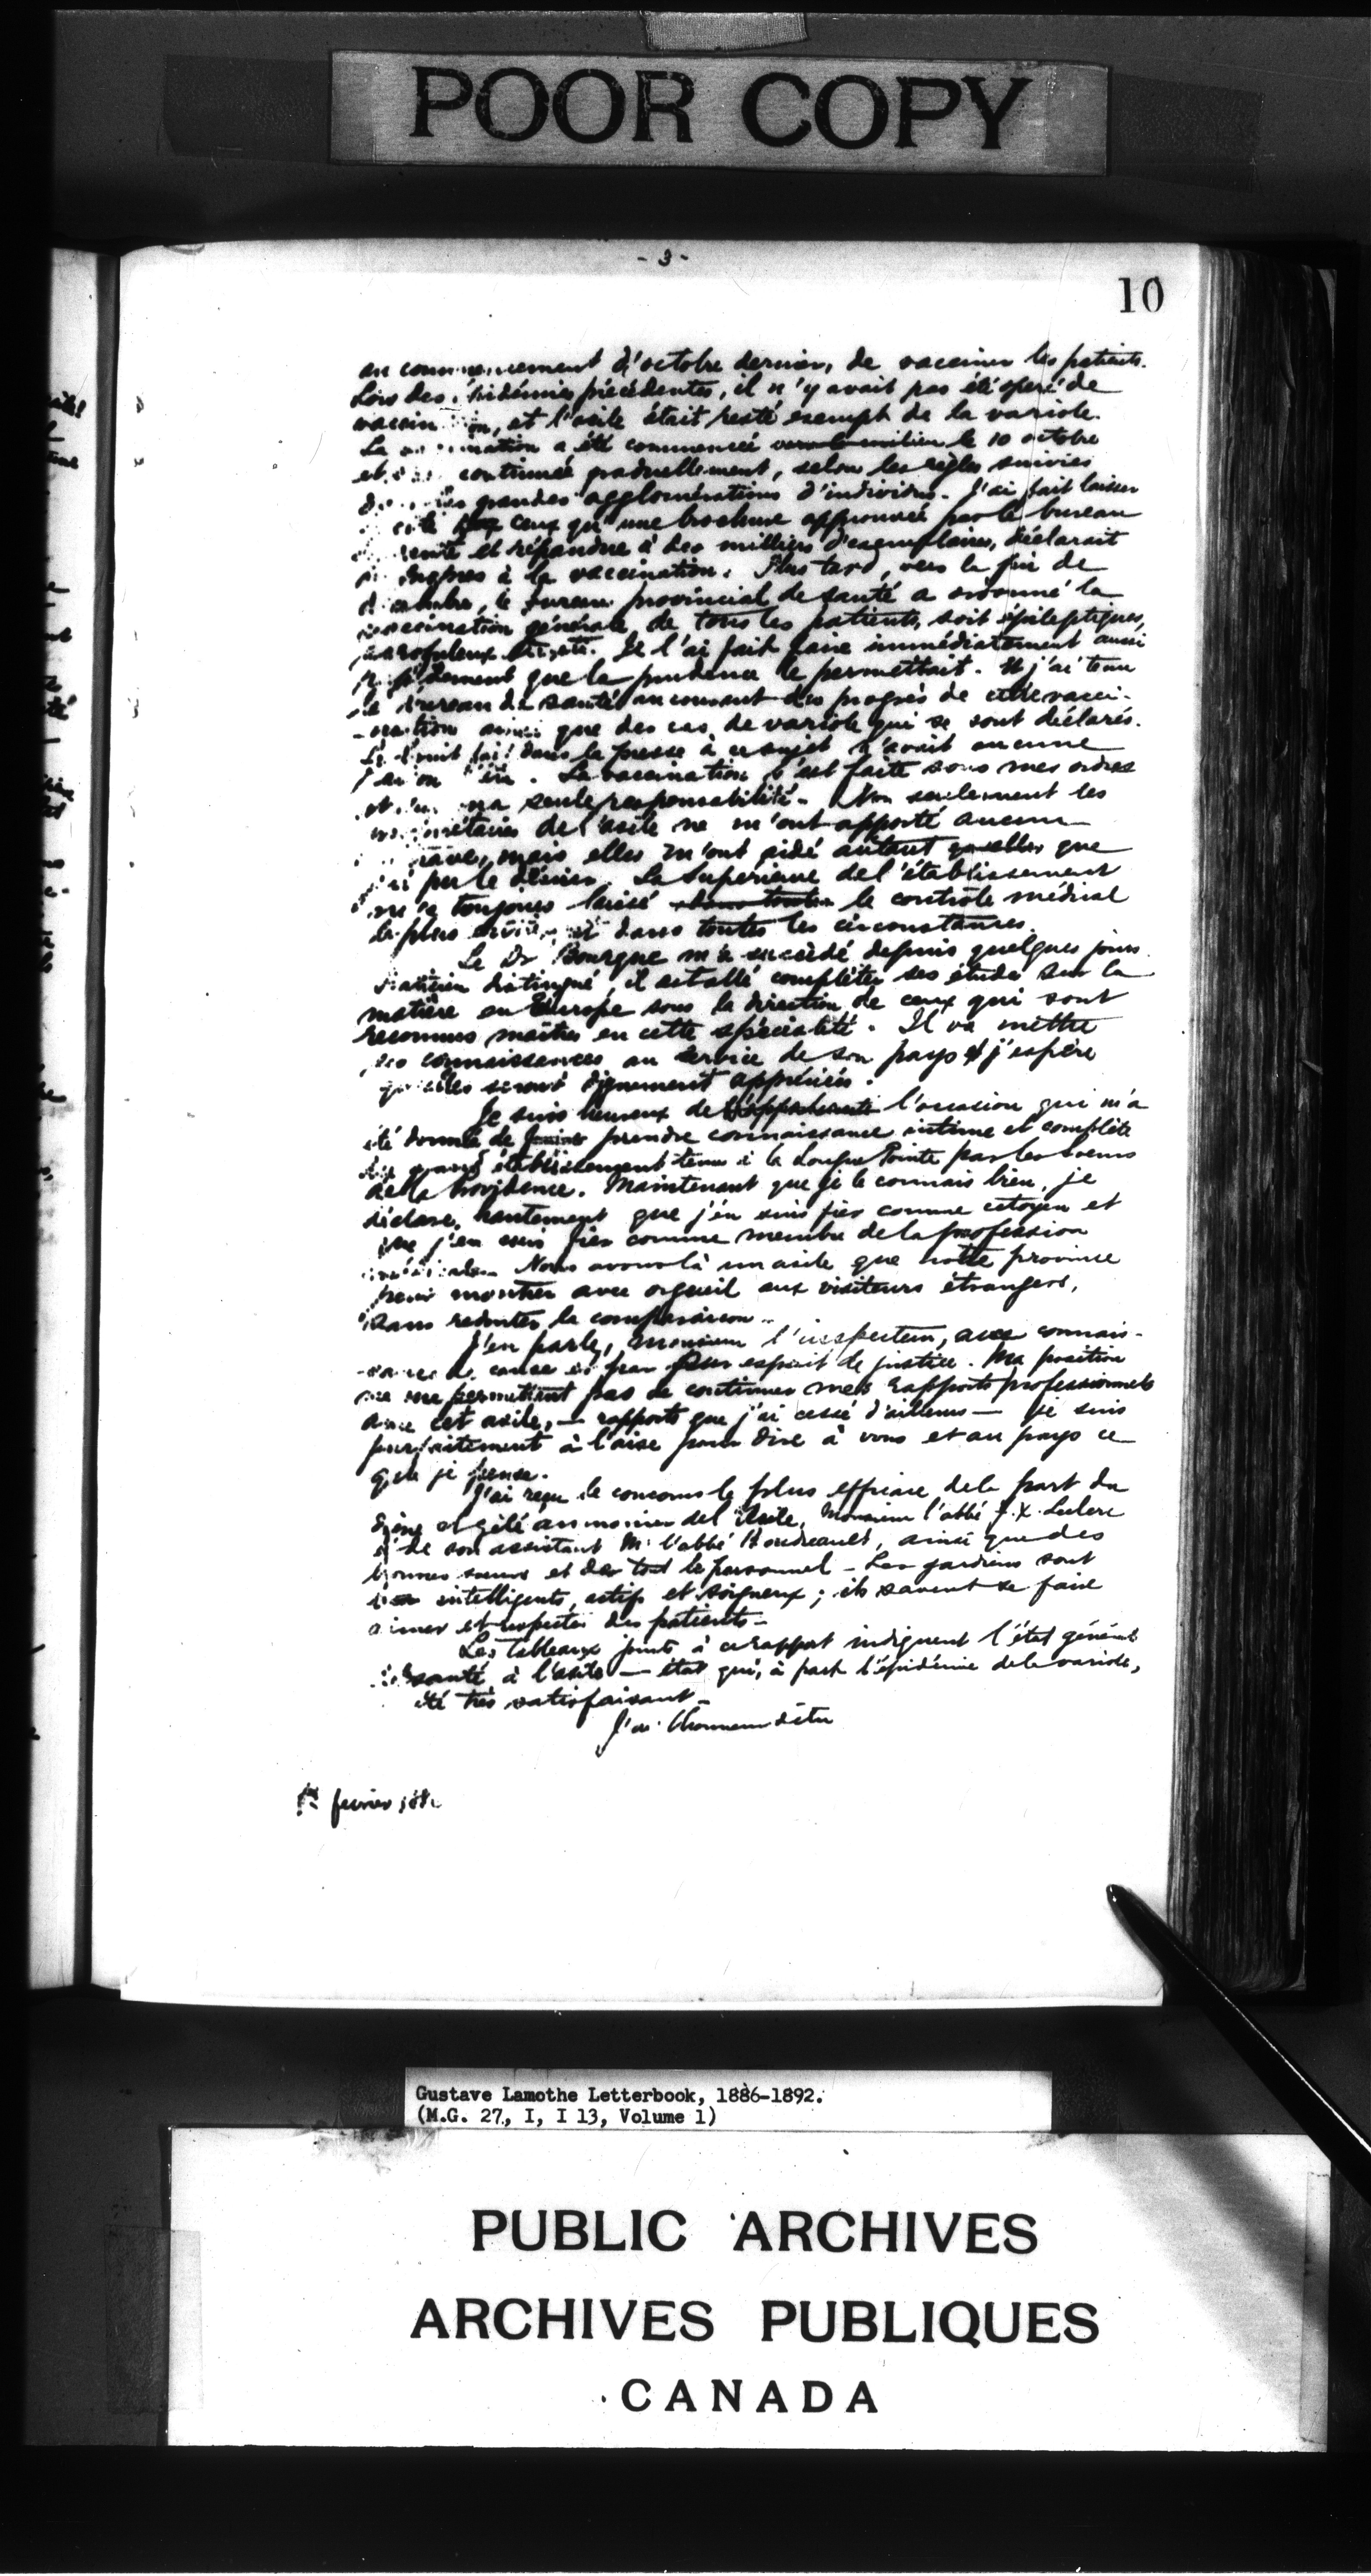 POOR COPY
- 3 -
10
au commencement d'octobre dernier, de vacciner les patients.
Lors des épidémies précédentes, il n'y avait pas été opéré de
vaccination, et l'asile était resté exempt de la variole.
La vaccination a été commencée vers le milieu le 10 octobre
et continuée graduellement, selon les règles suivies
grandes agglomérations d'individus. J'ai fait laisser
ceux qu'une brochure approuvée par le bureau
santé et répandue à des milliers d'exemplaires, déclarait
impropres à la vaccination. Plus tard, vers la fin de
décembre, le bureau provincial de santé a ordonné la
vaccination générale de tous les patients, soit épileptiques,
scrofuleux etc. etc. Je l'ai fait faire immédiatement aussi
rapidement que la prudence le permettait. Et j'ai tenu
le bureau de santé au courant des progrès de cette vacci-
-nation ainsi que des cas de variole qui se sont déclarés.
Le bruit fait dans la presse à ce sujet n'avait aucune
raison d'être. La vaccination s'est faite sous mes ordres
et sous ma seule responsabilité. Non seulement les
propriétaires de l'asile ne m'ont apporté aucune
entrave, mais elles m'ont aidé autant qu'elles que
j'ai pu le désirer. La Supérieure de l'établissement
m'a toujours laissé dans toutes le contrôle médical
le plus entier, et dans toutes les circonstances.
Le Dr Bourque m'a succédé depuis quelques jours.
Praticien distingué, il est allé compléter ses études sur la
matière en Europe sous la direction de ceux qui sont
reconnus maîtres en cette spécialité. Il va mettre
ses connaissances au service de son pays et j'espère
qu'elles seront dignement appréciées.
Je suis heureux de l'occasion qui m'a
été donnée de prendre connaissance intime et complète
du grand établissement tenu à la Longue Pointe par les Soeurs
de la Providence. Maintenant que je le connais bien, je
déclare hautement que j'en suis fier comme citoyen et
que j'en suis fier comme membre de la profession
médicale. Nous avons là un asile que notre province
peut montrer avec orgueil aux visiteurs étrangers,
sans redouter la comparaison.
J'en parle, monsieur l'inspecteur, avec connais-
-sance de cause et par pur esprit de justice. Ma position
ne me permettant pas de continuer mes rapports professionnels
avec cet asile, — rapports que j'ai cessé d'ailleurs — je suis
parfaitement à l'aise pour dire à vous et au pays ce
que je pense.
J'ai reçu le concours le plus efficace de la part du
digne et zélé aumonier de l'Asile, Monsieur l'abbé F. X. Leclerc
et de son assistant M. l'abbé Boudreault, ainsi que des
bonnes soeurs et de tout le personnel — Les gardiens sont
intelligents, actifs et soigneux; ils savent se faire
aimer et respecter des patients —
Les tableaux joints à ce rapport indiquent l'état général
de santé à l'asile — état qui, à part l'épidémie de la variole,
été très satisfaisant —
J'ai l'honneur d'être
1er fevrier
Gustave Lamothe Letterbook, 1886-1892.
(M.G. 27, I, I 13, Volume 1)
PUBLIC ARCHIVES
ARCHIVES PUBLIQUES
CANADA